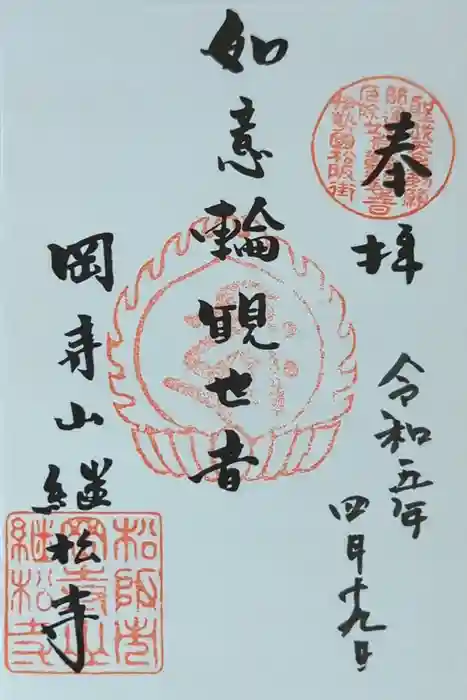 奉拝
令和五年
四月十九日
如意輪観世音
岡寺山継松寺
松阪市
岡寺山
継松寺